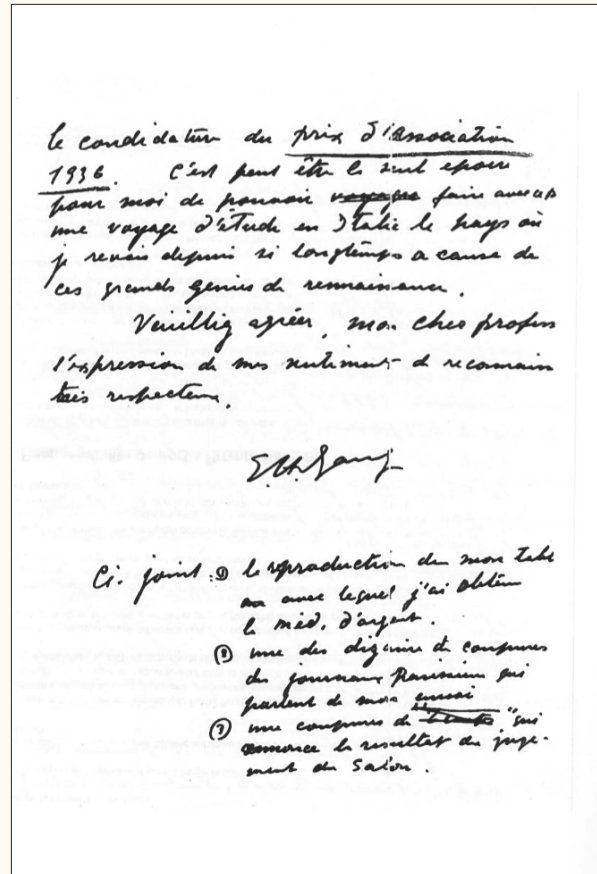 le condidature du prix d'association
1936. C'est peut être le seul espoir
pour moi de pouvoir voyager faire avec
une voyage d'étude en Italie le pays où
je revais depuis si longtemps a cause de
ces grands genies de rennaissance.
Veuillig agréer mon cher profess
l'expression de mes sentiments de reconnaiss
très respecteux.
Ci-joint: ① le reproduction du mon tabl
avec lequel j'ai obtenu
le méd. d'argent.
② une des dizaine de coupures
des journaux Parisiens qui
parlent de mon envoi
③ une coupures de qui
annonce le resultat du juge-
ment du Salon.